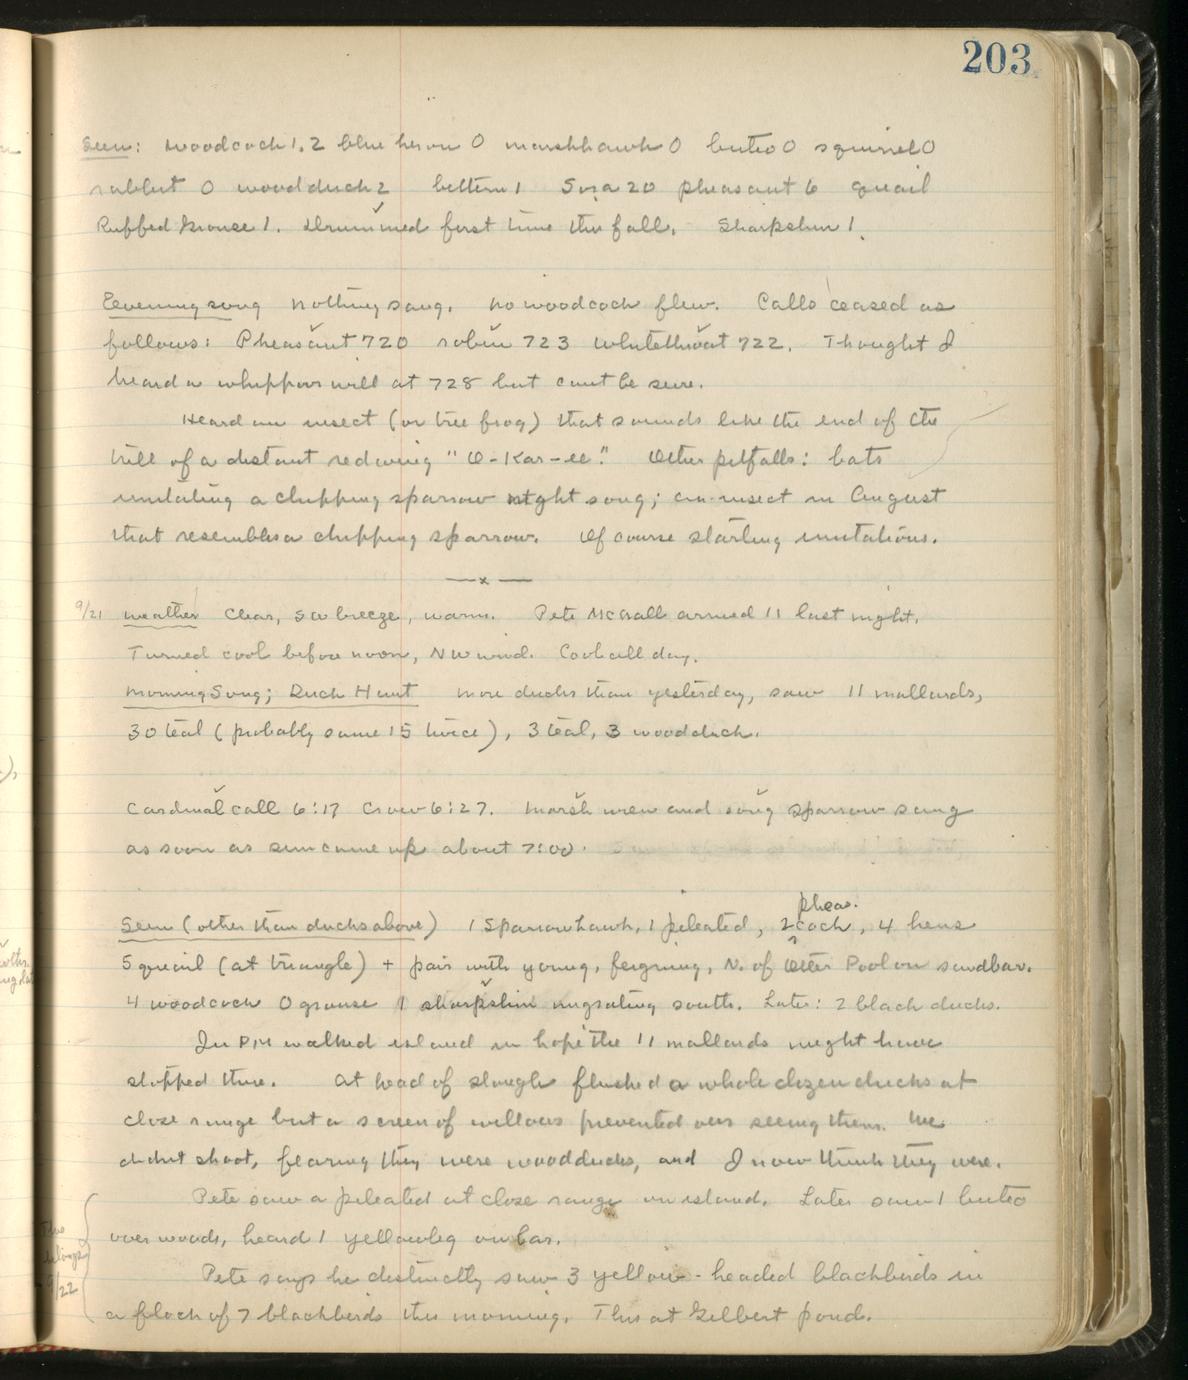 203
Seen: woodcock 1, 2 blue heron 0 marshhawk 0 buteo 0 squirrel 0
rabbit 0 woodduck 2 bittern 1 Sora 20 pheasant 6 quail
Ruffed Grouse 1. Drummed first time this fall. Sharpshin 1.
Evening song nothing sang. No woodcock flew. Calls ceased as
follows: Pheasant 720 robin 723 whitethroat 722. Thought I
heard a whippoorwill at 728 but cant be sure.
Heard an insect (or tree frog) that sounds like the end of the
trill of a distant redwing "O-Kar-ee." Other pitfalls: bats
imitating a chipping sparrow night song; an insect in August
that resembles a chipping sparrow. Of course starling imitations.
—x—
9/21 weather Clear, SW breeze, warm. Pete McGrall arrived 11 last night.
Turned cool before noon, NW wind. Cool all day.
Morning Song; Duck Hunt more ducks than yesterday, saw 11 mallards,
30 teal (probably same 15 twice), 3 teal, 3 woodduck.
Cardinal call 6:17 Crow 6:27. Marsh wren and song sparrow sang
as soon as sun came up about 7:00.
Seen (other than ducks above) 1 Sparrowhawk, 1 pileated, 2 phea. cock, 4 hens
5 quail (at triangle) + pair with young, feigning, N. of Otter Pool on sandbar.
4 woodcock 0 grouse 1 sharpshin migrating south. Later: 2 black ducks.
In PM walked island in hope the 11 mallards might have
stopped there. At head of slough flushed a whole dozen ducks at
close range but a screen of willows prevented our seeing them. We
didnt shoot, fearing they were woodducks, and I now think they were.
Pete saw a pileated at close range on island. Later saw 1 buteo
over woods, heard 1 yellowleg on bar.
This belongs 9/22
Pete says he distinctly saw 3 yellow-headed blackbirds in
a flock of 7 blackbirds this morning. This at Gilbert pond.